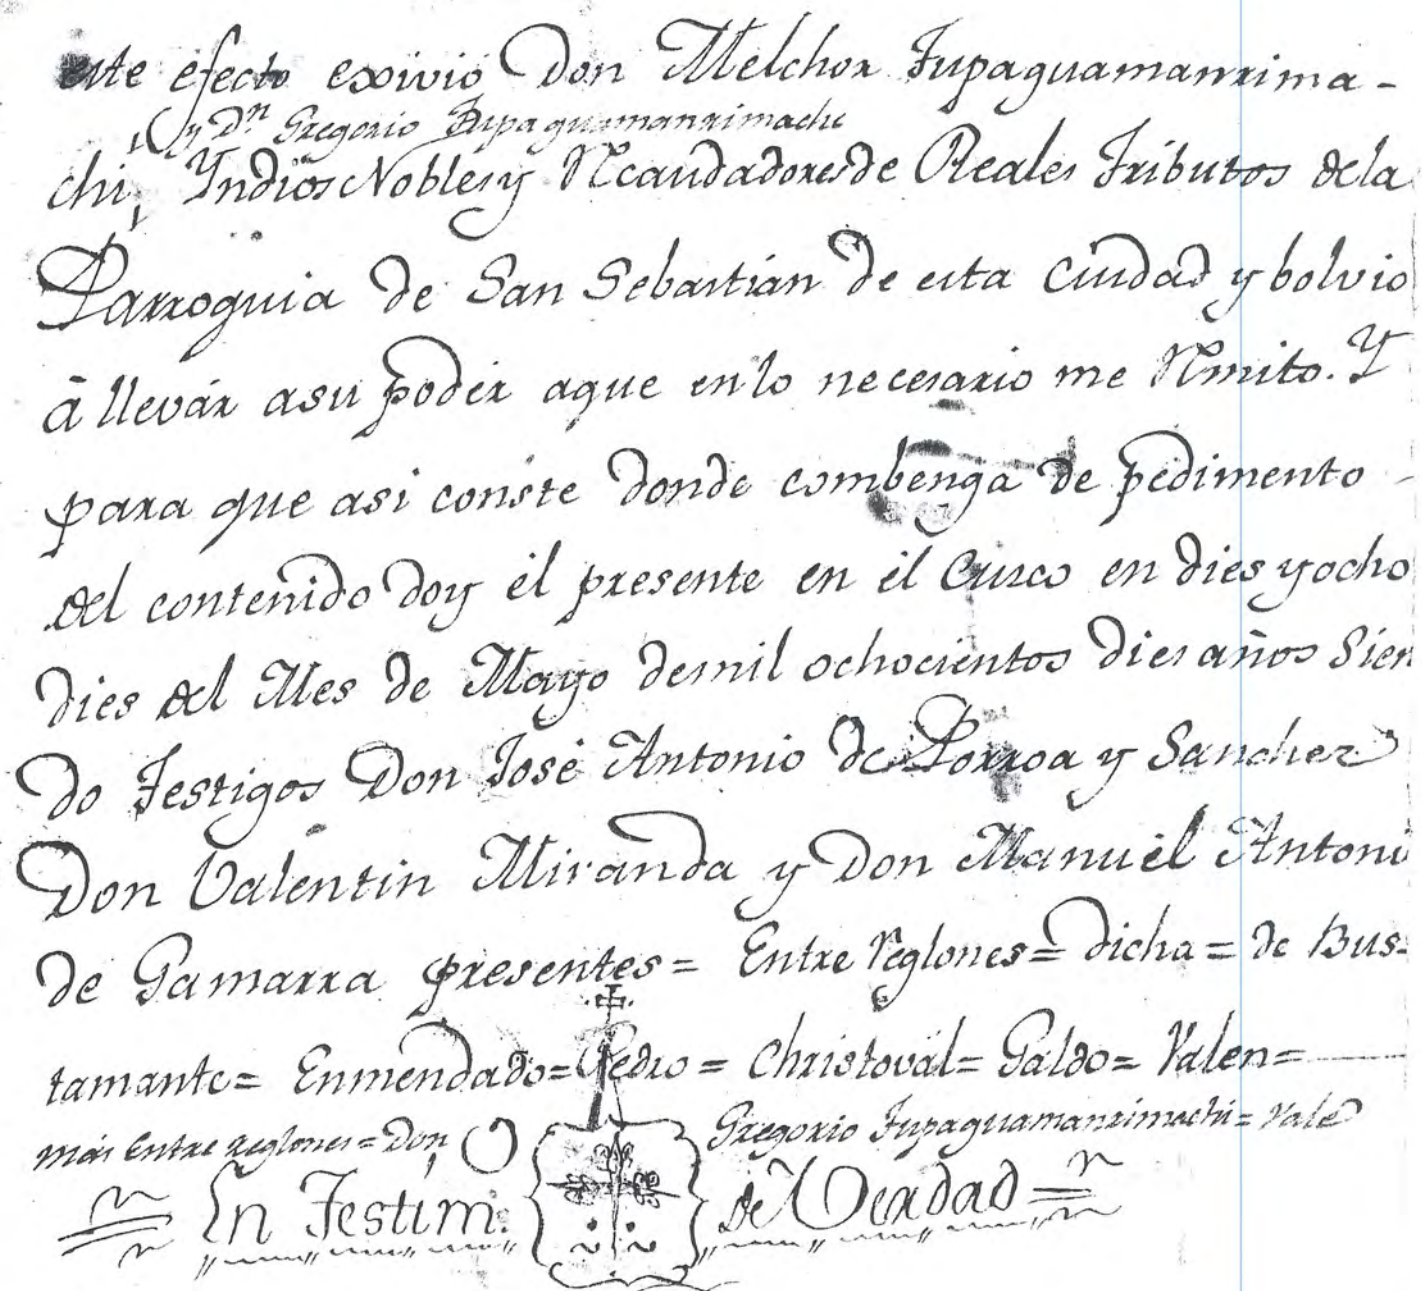 este efecto exivió Don Melchor Tupaguamanrima-
y Dn. Gregorio Tupaguamanrimachi
chi, Yndios Nobles y Recaudadores de Reales Tributos dela
Parroquia de San Sebastián de esta Ciudad y bolvio
á llevár asu podér aque enlo necesario me Remito. Y
para que asi conste donde combenga de pedimento
del contenido doy él presente en él Cusco en dies y ocho
dies del Mes de Mayo demil ochocientos dies años Sien
do Testigos Don José Antonio de Porroa y Sanchez
Don Valentin Miranda y Don Manuél Antoni
de Gamarra presentes = Entre reglones = dicha = de Bus-
tamante = Enmendado = Pedro = Christovál = Galdo = Valen =
más Entre reglones = Don Gregorio Tupaguamanrimachi = Vale
En Testim. de Verdad